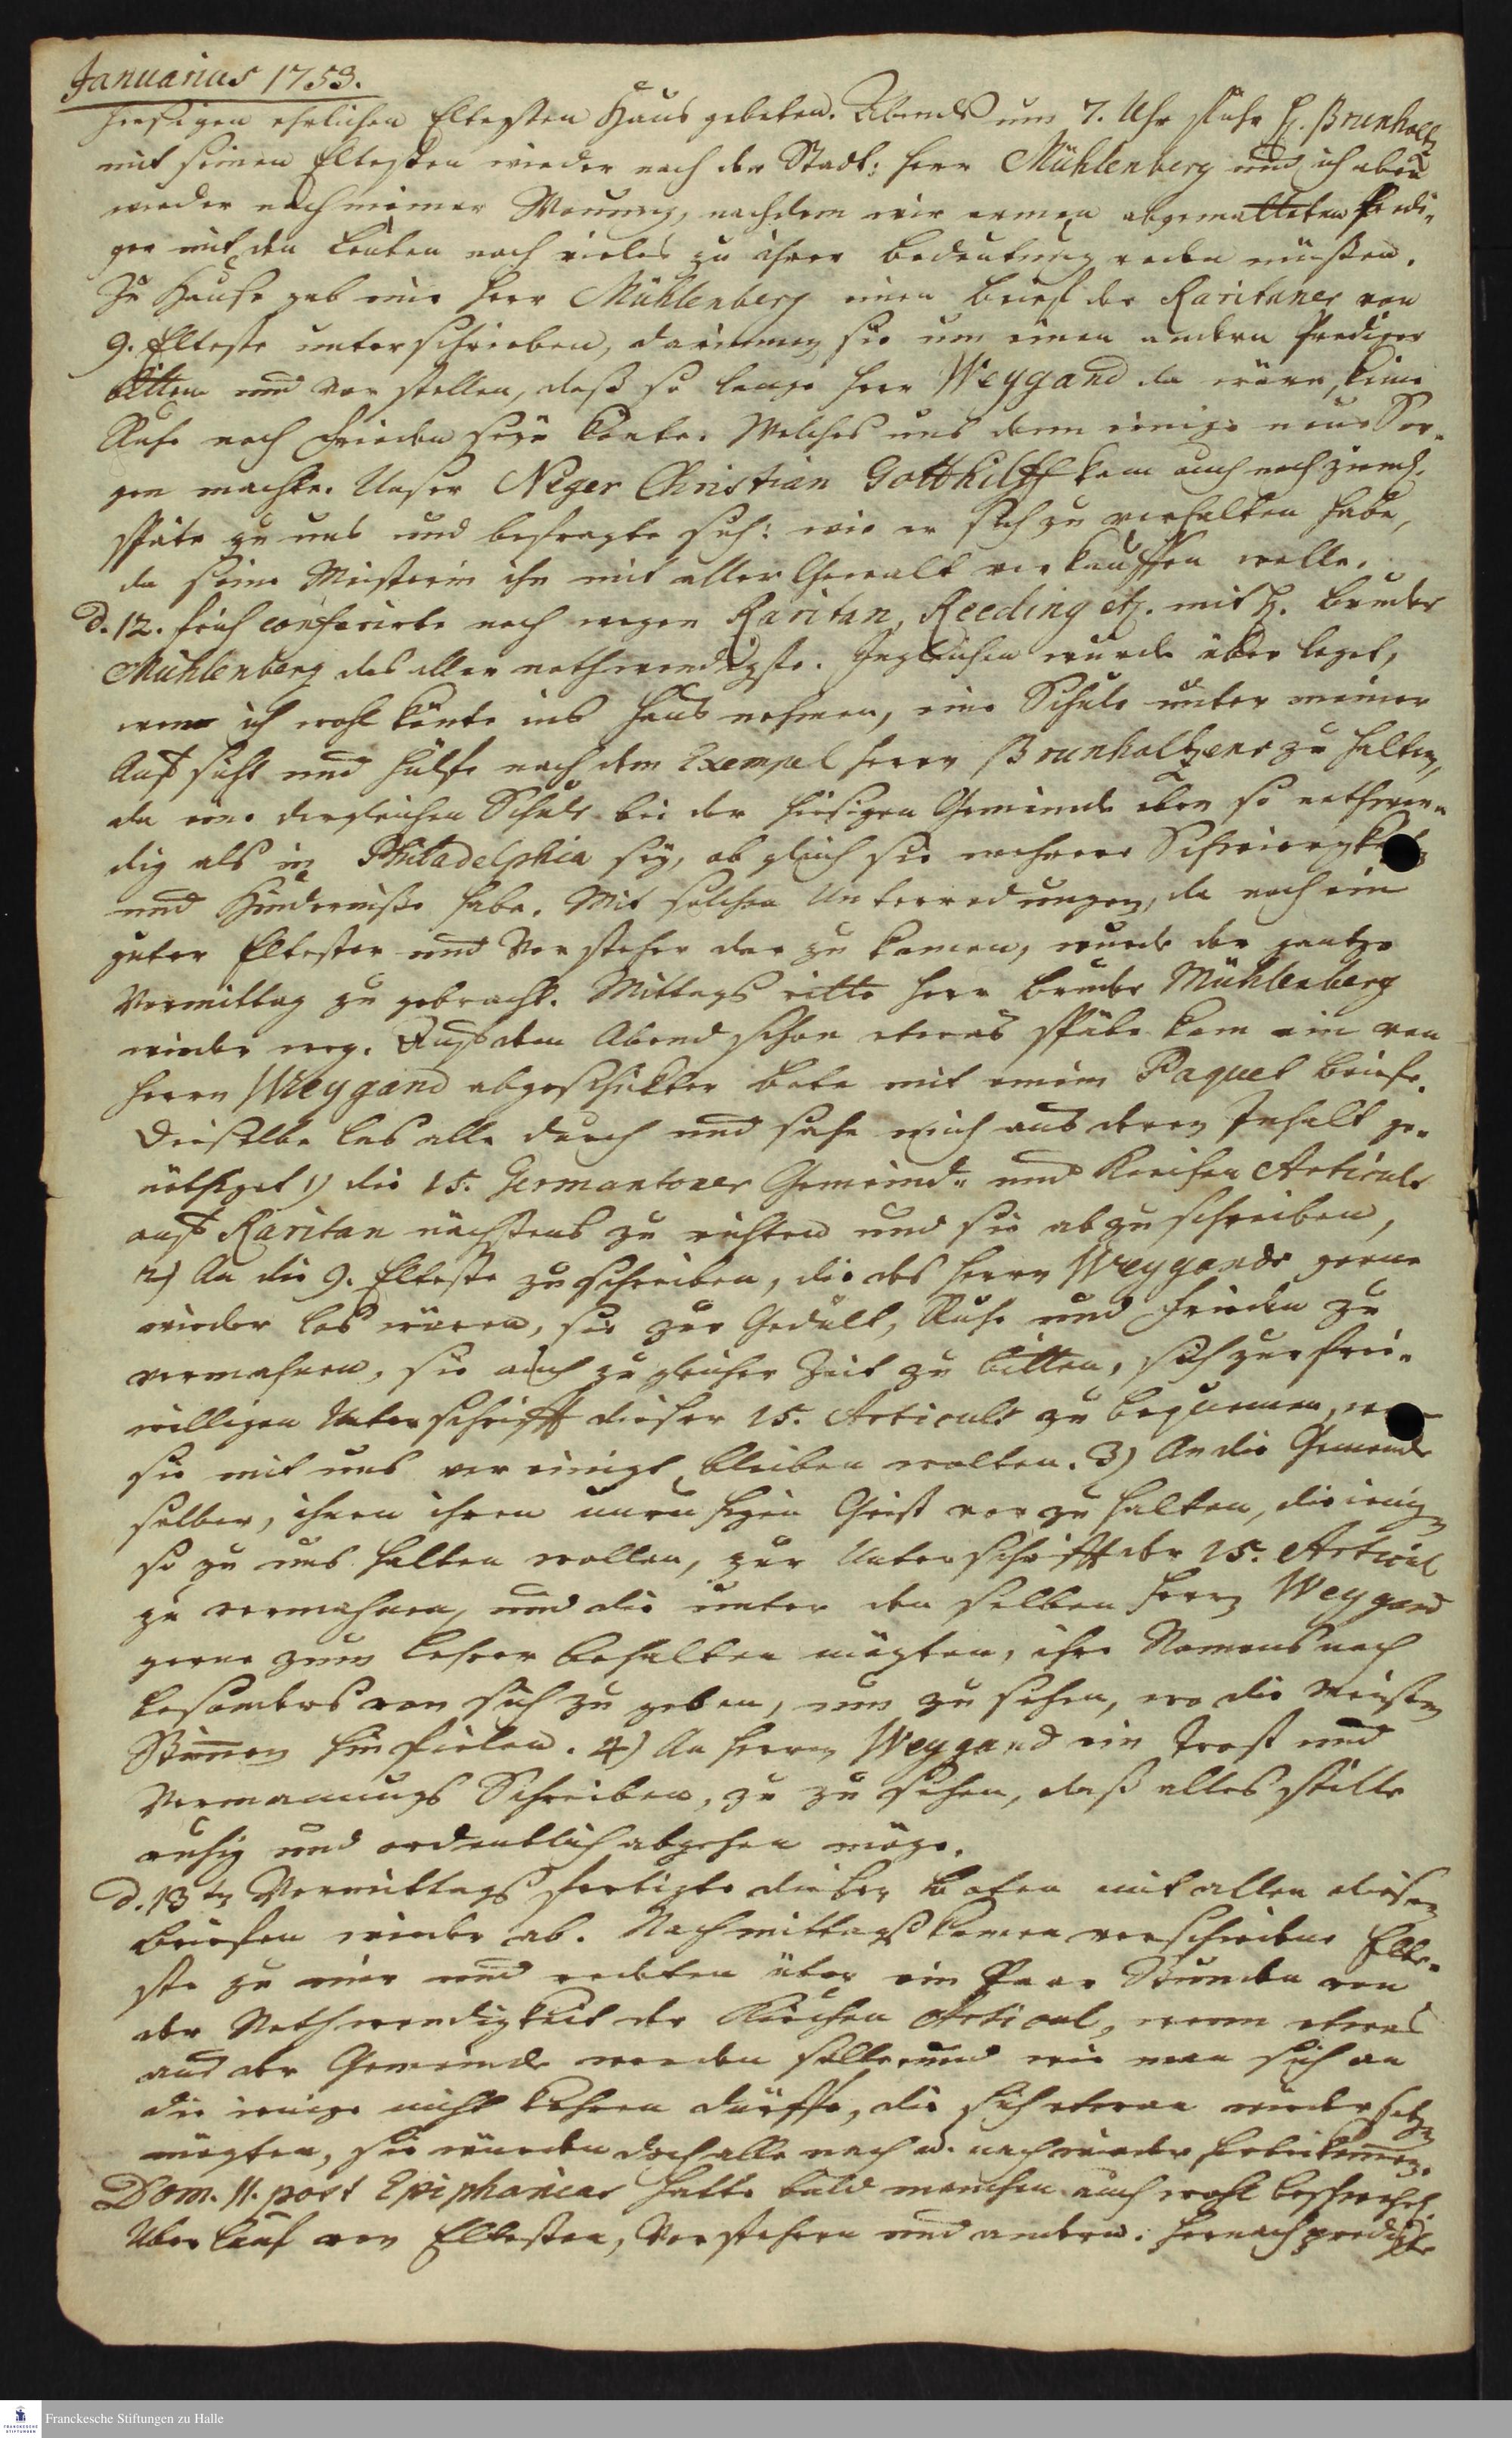 Januarius 1753.
hiesigen ehrlichen Eltesten Haus gebeten. Abends um 7. Uhr fuhr H. Brunholtz
mit seinen Eltesten wieder nach der Stadt; Herr Mühlenberg und ich aber
wieder nach meiner Wonung, nachdem wir armen abgematteten Predi-
ger mit den Leuten noch vieles zu ihrer Bedeutung reden müssen.
Zu Hause gab mir Herr Mühlenberg einen Brief der Raritaner von
9. Elteste unterschrieben, darinnen sie um einen andern Prediger
bitten und vorstellen, daß so lange Herr Weygand da wäre, keine
Ruhe noch Frieden seyn könte. Welches uns denn einige neue Sor-
gen machte. Unser Neger Christian Gotthilff kam auch noch zieml.
späte zu uns und befragte sich: wie er sich zu verhalten habe,
da seine Meisterin ihn mit aller Gewalt verkauffen wolle.
d. 12. früh conferirte noch wegen Raritan, Reeding etc. mit H. Bruder
Mühlenberg das aller nothwendigste. Ingleichen wurde überleget,
wen ich wohl könte ins Haus nehmen, eine Schule unter meiner
Aufsicht und Hülfe nach dem Exempel Herrn Brunholtzens zu halten,
da eine dergleichen Schule bei der hiesigen Gemeinde eben so nothwen-
dig als in Philadelphia sey, ob gleich sie mehrere
und Hinderniße habe. Mit solchen Unterredungen, da noch ein
guter Eltester und Vorsteher dar zu kamen, wurde der gantze
Vormittag zu gebracht. Mittags ritte Herr Bruder Mühlenberg
wieder weg. Auf den Abend schon etwas späte kam ein von
Herrn Weygand abgeschickter Bote mit einem Paquet Briefe.
Dieselbe las alle durch und sahe mich aus deren Inhalt ge-
nöthiget 1) die 15. Germantoner Gemeind- und Kirchen Articuls
auf Raritan nächstens zu richten und sie abzuschreiben,
2) An die 9. Elteste zu schreiben, die des Herrn Weygands gerne
wieder los wären, sie zur Gedult, Ruhe und Frieden zu
vermahnen, sie auch zu gleicher Zeit zu bitten, sich zur frei-
willigen Unterschrifft dieser 15. Articuls zu bequemen,
sie mit uns vereinigt bleiben wolten. 3) An die Gemeinde
selber, ihnen ihren unruhigen Geist vor zu halten, diejenig
so zu uns halten wollen, zur Unterschrifft der 15. Articul
zu vermahnen, und die unter denselben Herrn Weygand
gerne zum Lehrer behalten mögten, ihre Namens noch
besonders von sich zu geben, um zu sehen, wo die meisten
Stimmen hin fielen. 4) An Herrn Weygand ein Trost und
Vermanungs Schreiben, zu zu sehen, daß alles stille
ruhig und ordentlich abgehen möge.
d. 13ten Vormittags fertigte diesen Boten mit allen diesen
Briefen wieder ab. Nachmittags kamen verschiedene Elte-
ste zu mir und redeten über ein Paar Stunden von
der Nothwendigkeit der Kirchen Articul, wenn etwas
aus der Gemeinde werden solte und wie man sich an
die jenige nicht kehren dürffe, die sich etwan widersetzen
mögten, sie würden doch alle nach u. nach wieder herbeikommen.
Dom. II. post Epiphanias hatte bald manchen auch wohl beschwerl.
Überlauf von Eltesten, Vorstehern und andern. Hernach predigte
Franckesche Stiftungen zu Halle